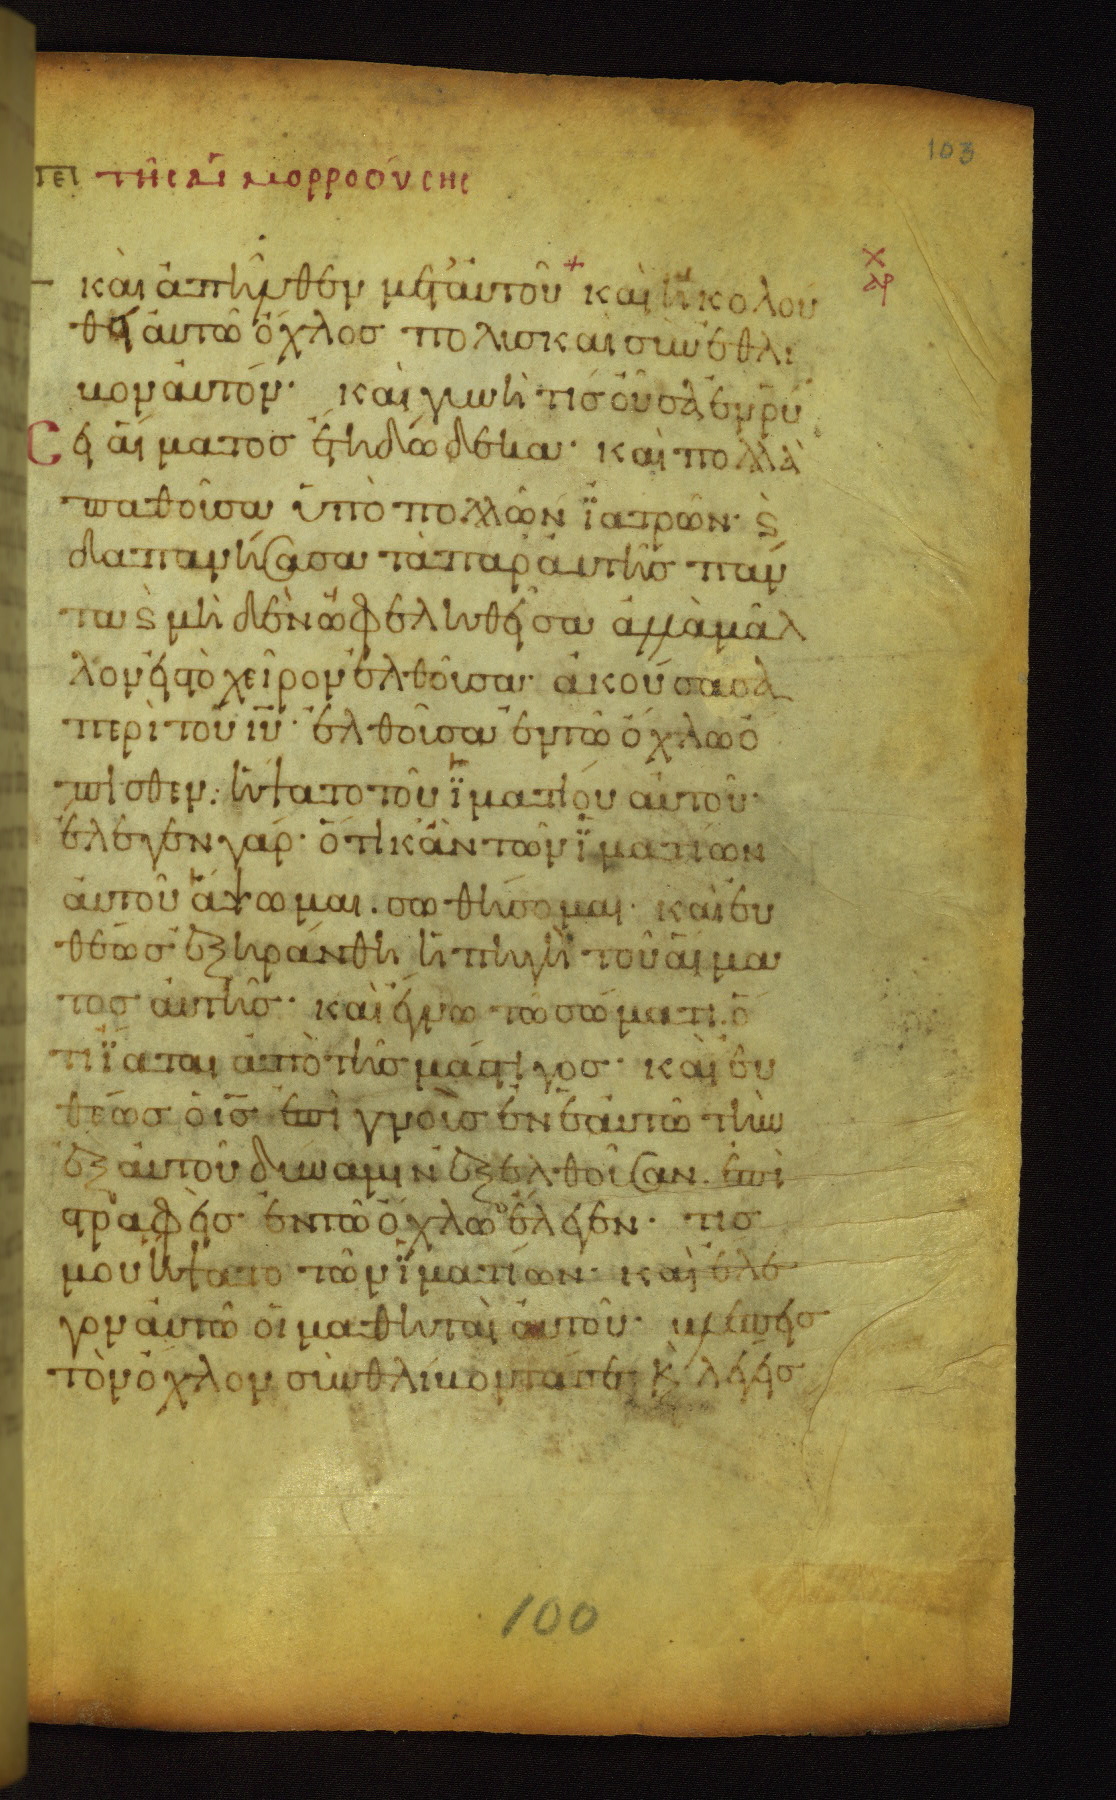 103
πει της αἱμορροούσης
καὶ ἀπῆλθεν μετ' αὐτοῦ + καὶ ἠκολού
θει αὐτῶ ὄχλος πολὺς καὶ συνέθλι
βον αὐτόν· καὶ γυνή τις οὖσα ἐν ρύ
σει αἵματος ἔτη δώδεκα· καὶ πολλὰ
παθοῦσα ὑπὸ πολλῶν ἰατρῶν· ϗ
δαπανήσασα τὰ παρ' αὐτῆς πάν
τα ϗ μηδὲν ὠφεληθεῖσα ἀλλὰ μᾶλ
λον εἰς τὸ χεῖρον ἐλθοῦσα· ἀκούσασα
περὶ τοῦ ιυ· ἐλθοῦσα ἐν τῶ ὄχλω ὄ
πισθεν. ἥψατο τοῦ ἱματίου αὐτοῦ·
ἔλεγεν γάρ· ὅτι κἂν τῶν ἱματίων
αὐτοῦ ἅψωμαι. σωθήσομαι· καὶ εὐ
θέως ἐξηράνθη ἡ πηγὴ τοῦ αἵμα
τος αὐτῆς· καὶ ἔγνω τῶ σώματι. ὅ
τι ἴαται ἀπὸ τῆς μάστιγος· καὶ εὐ
θέως ὁ ις ἐπιγνοὺς ἐν ἑαυτῶ τὴν
ἐξ αὐτοῦ δύναμιν ἐξελθοῦσαν. ἐπι
στραφεὶς ἐν τῶ ὄχλω ἔλεγεν· τίς
μου ἥψατο τῶν ἱματίων· καὶ ἔλε
γον αὐτῶ οἱ μαθηταὶ αὐτοῦ· βλέπεις
τὸν ὄχλον συνθλίβοντά σε· ϗ λέγεις
100